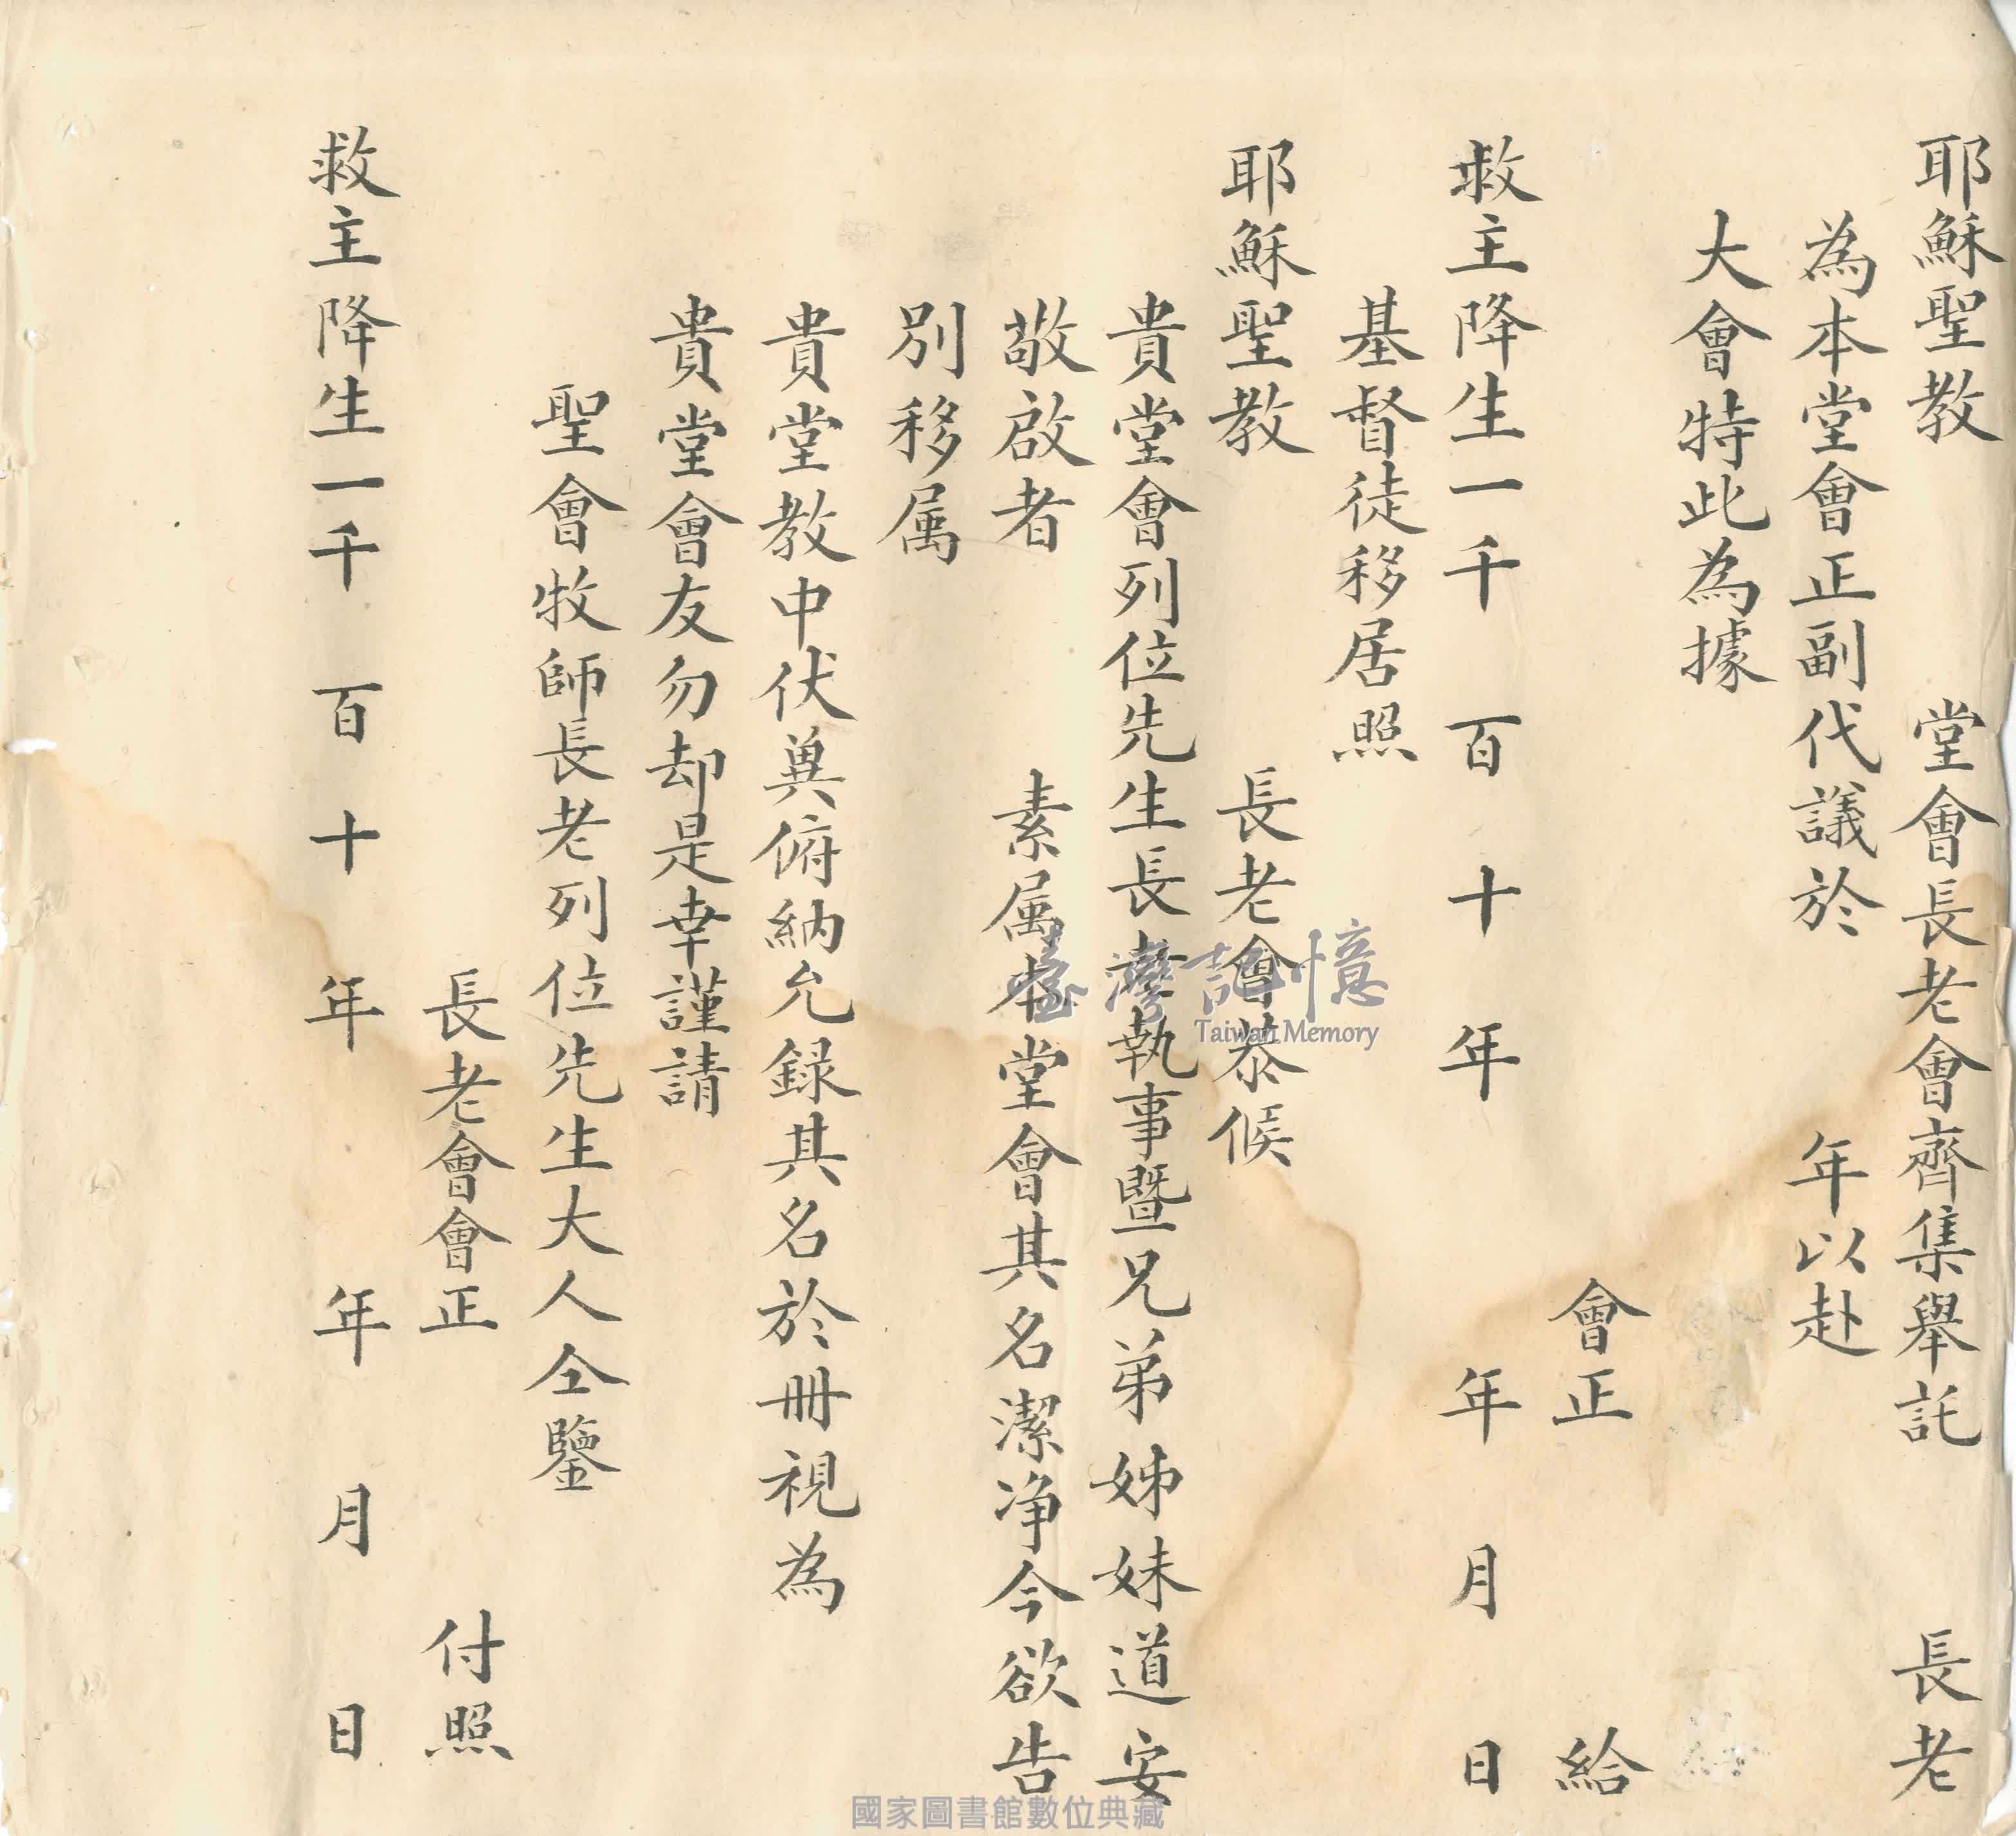 耶穌聖教　　堂會長老會齊集舉託　　長老
為本堂會正副代議於　　年以赴
大會特此為據
會正　　給
救主降生一千　百　十　年　　年　月　日
基督徒移居照
耶穌聖教　　長老會恭候
貴堂會列位先生長老執事暨兄弟姊妹道安
敬啟者　　素属本堂會其名潔净今欲告
別移属
貴堂教中伏兾俯納允録其名於冊視為
貴堂會友勿却是幸謹請
聖會牧師長老列位先生大人仝鑒
長老會會正　　付照
救主降生一千　百　十　年　　年　月　日
臺灣記憶
Taiwan Memory
國家圖書館數位典藏